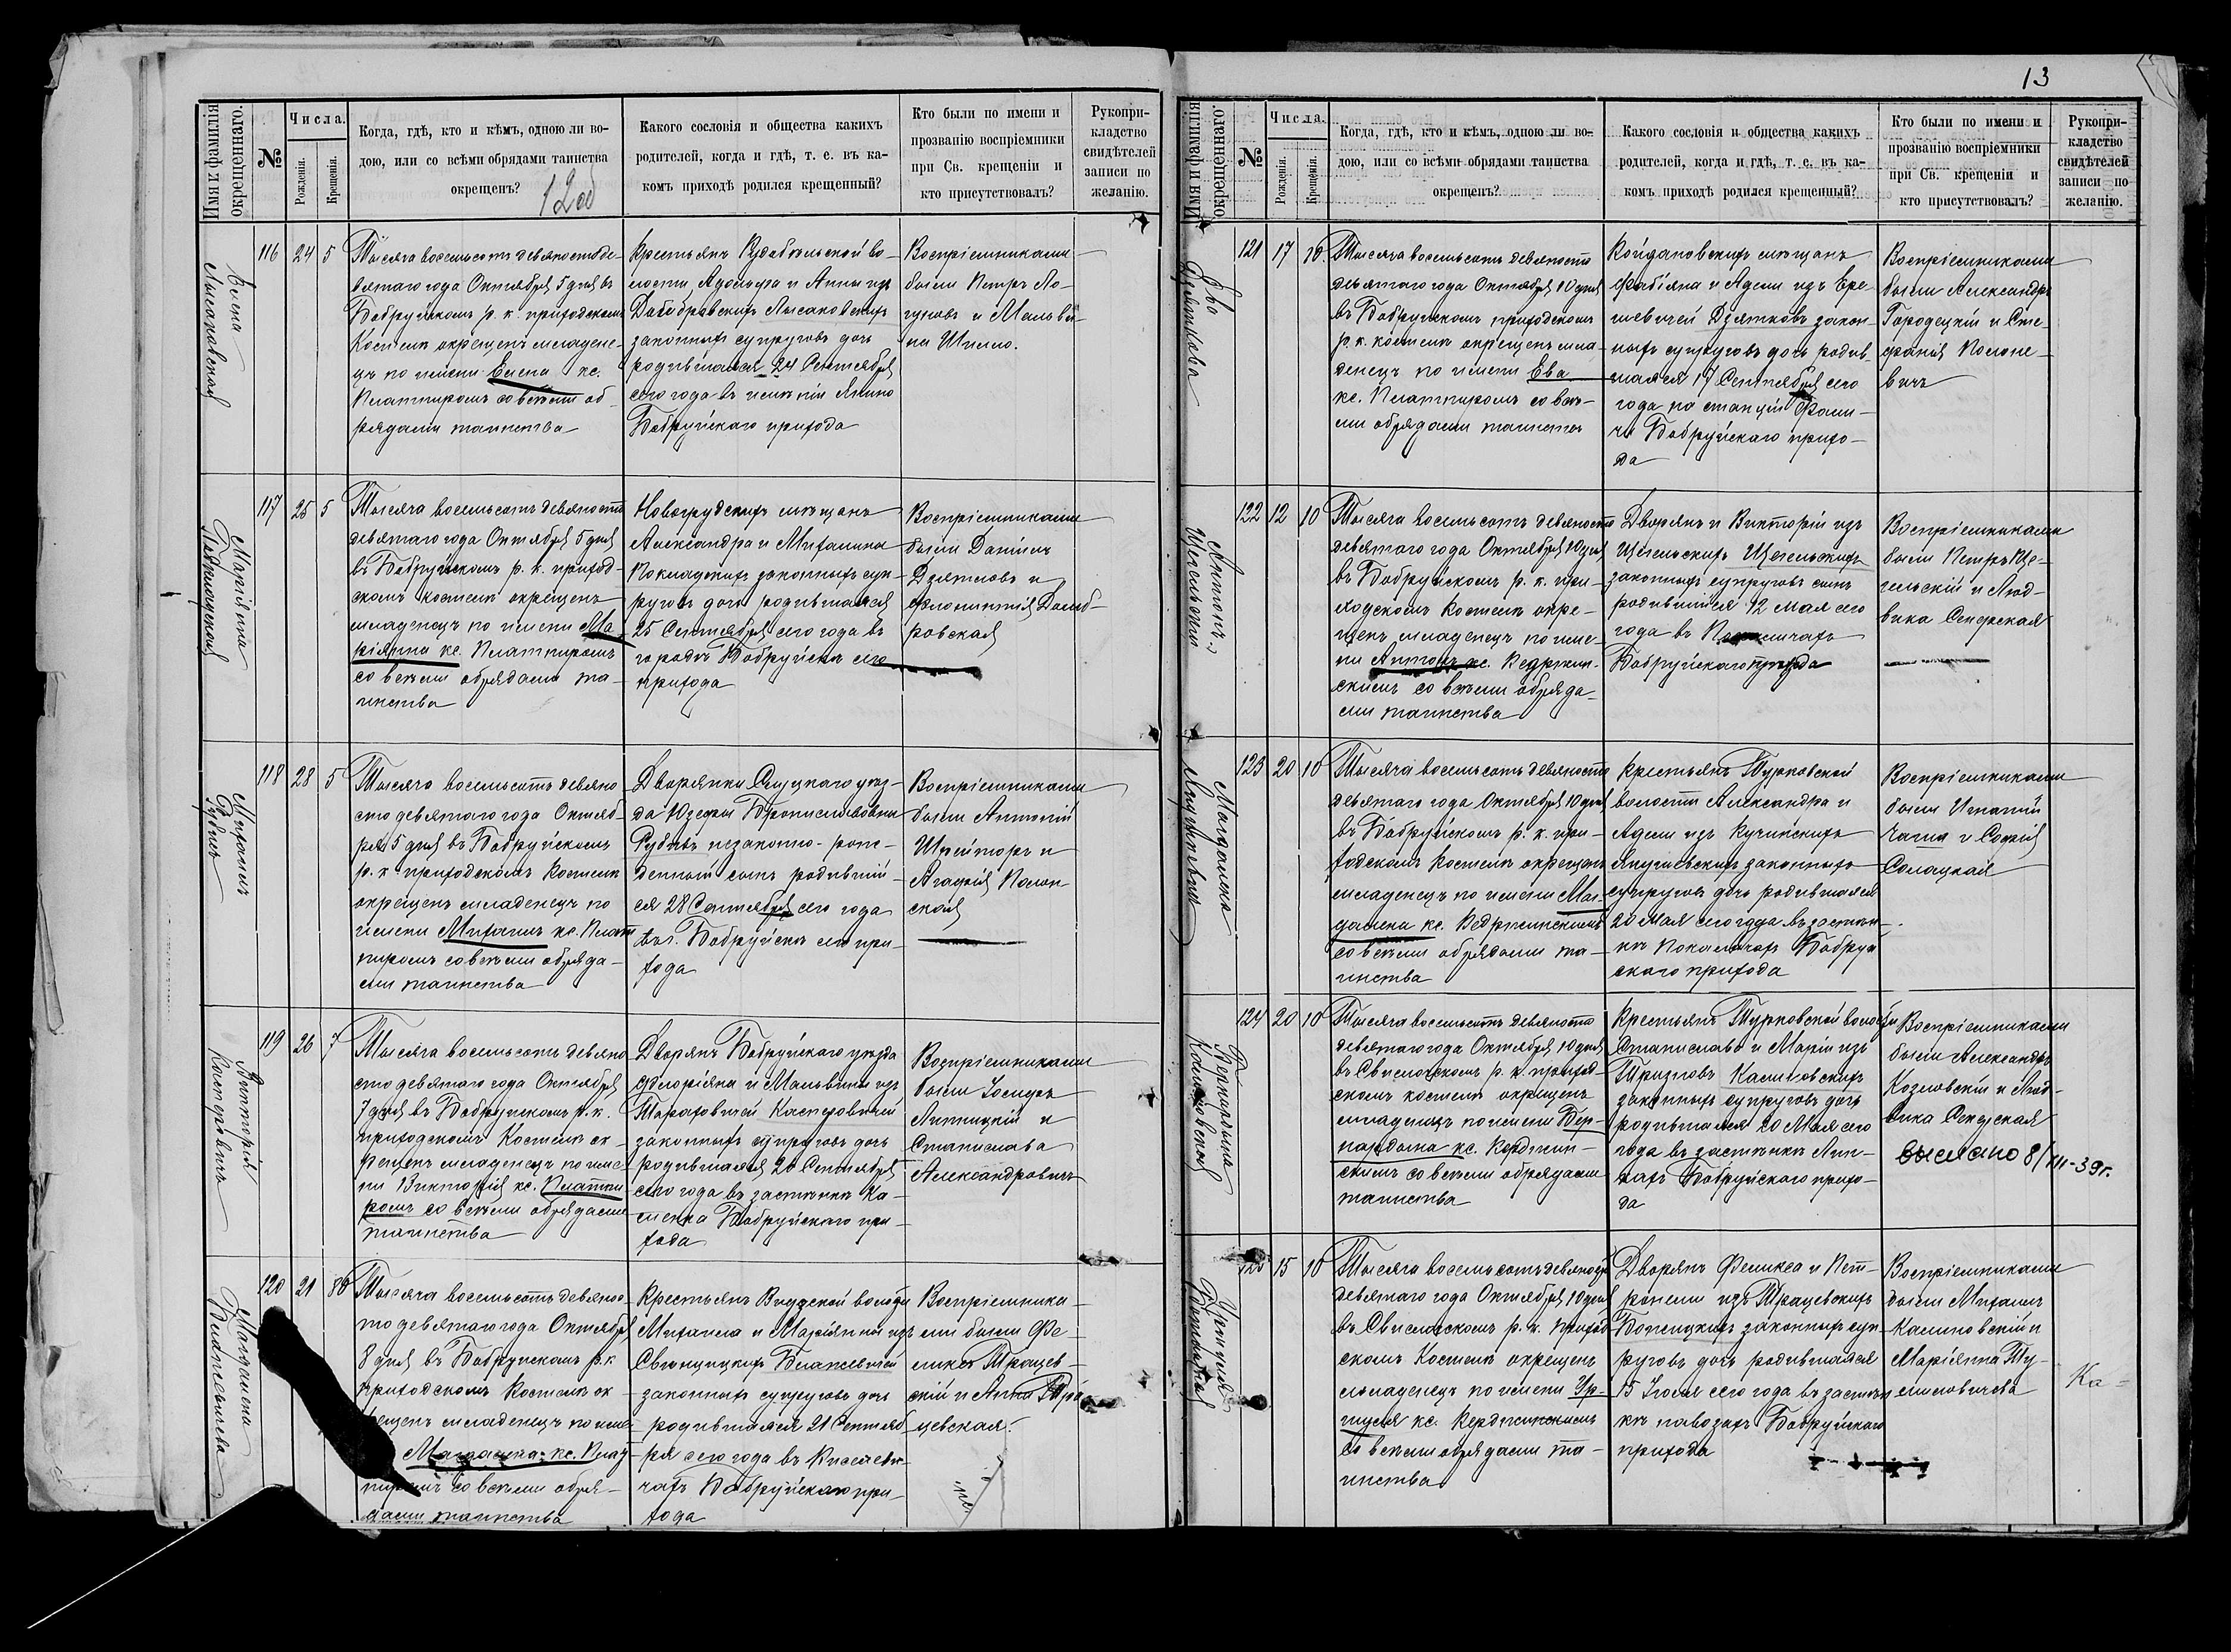 Имя и фамилія
окрещеннаго.
№
Числа.
Рожденія.
Крещенія.
Когда, гдѣ, кто и кѣмъ, одною ли во-
дою, или со всѣми обрядами таинства
окрещенъ?
12об
Какого сословія и общества какихъ
родителей, когда и гдѣ, т. е. въ ка-
комъ приходѣ родился крещенный?
Кто были по имени и
прозванію воспріемники
при Св. крещеніи и
кто присутствовалъ?
Рукопри-
кладство
свидѣтелей
записи по
желанію.
Елена
Лысаковская
116
24
5
Тысяча восемьсотъ девяностоде-
вятаго года Октября 5 дня въ
Бобруйскомъ р. к. приходскомъ
Костелѣ окрещенъ младене-
цъ по имени Елена кс.
Пиаттиромъ со всѣми об-
рядами таинства
Крестьянъ во-
лости Адольфа и Анны изъ
Лысаковскихъ
законныхъ супруговъ дочь
родившаяся 24 Сентября
сего года въ имѣніи Янино
Бобруйскаго прихода
Воспріемниками
были Петръ Ло-
и Мальви-
на
Маріянна
Покладская
117
25
5
Тысяча восемьсотъ девяносто
девятаго года Октября 5 дня
въ Бобруйскомъ р. к. приход-
скомъ костелѣ окрещенъ
младенецъ по имени Ма-
ріянна кс. Пиаттиромъ
со всѣми обрядами та-
инства
Новогрудскихъ мѣщанъ
Александра и Михалины
Покладскихъ законныхъ суп-
руговъ дочь родившаяся
25 Сентября сего года въ
городѣ Бобруйскѣ сего
прихода
Воспріемниками
были Даніилъ
Дзятловъ и
Домб-
ровская
Михаилъ
Рубигъ
118
28
5
Тысяча восемьсотъ девяно
сто девятаго года Октяб-
ря 5 дня въ Бобруйскомъ
р. к приходскомъ Костелѣ
окрещенъ младенецъ по
имени Михаилъ кс. Пиат
тиромъ со всѣми обряда-
ми таинства
Дворянки Слуцкаго уѣз-
да Юзефы Брониславовны
незаконно-рож-
денный сынъ родивший-
ся 28 Сентября сего года
въ г. Бобруйскѣ сего при-
хода
Воспріемниками
были Антоній
и
Агафія Полон-
ская
Викторія
Касперовичъ
119
26
7
Тысяча восемьсотъ девяно
сто девятаго года Октября
7 дня въ Бобруйскомъ р. к.
приходскомъ Костелѣ ок-
рещенъ младенецъ по име-
ни Викторія кс. Пиатти
ромъ со всѣми обрядами
таинства
Дворянъ Бобруйскаго уѣзда
Флоріяна и Мальвины изъ
Касперовичей
законныхъ супруговъ дочь
родившаяся 26 Сентября
сего года въ застѣнкѣ Ка-
менка Бобруйскаго при-
хода
Воспріемниками
были Іосифъ
Липницкій и
Станислава
Александровичъ
Магдалена
Біалевичева
120
21
8
Тысяча восемьсотъ девянос-
то девятаго года Октября
8 дня въ Бобруйскомъ р. к
приходскомъ Костелѣ ок-
рещенъ младенецъ по име-
Магдалена кс. Пиат-
тиромъ со всѣми обря-
дами таинства
Крестьянъ волости
Михаила и Маріянны изъ
законныхъ супруговъ дочь
родившаяся 21 Сентяб-
ря сего года въ Киселеви-
чахъ Бобруйскаго при-
хода
Воспріемника-
ми были Фе-
ликсъ Трацев-
скій и Анна Тра
цевская.
13
Имя и фамилія
окрещеннаго.
№
Числа.
Рожденія.
Крещенія.
Когда, гдѣ, кто и кѣмъ, одною ли во-
дою, или со всѣми обрядами таинства
окрещенъ?
Какого сословія и общества какихъ
родителей, когда и гдѣ, т. е. въ ка-
комъ приходѣ родился крещенный?
Кто были по имени и
прозванію воспріемники
при Св. крещеніи и
кто присутствовалъ?
Рукопри-
кладство
свидѣтелей
записи по
желанію.
Ева
Дзятлова
121
17
10
Тысяча восемьсотъ девяносто
девятаго года Октября 10 дня
въ Бобруйскомъ приходскомъ
р. к. костелѣ окрещенъ мла-
денецъ по имени Ева
кс. Пиаттиромъ со всѣ-
ми обрядами таинства
Койдановскихъ мѣщанъ
Фабіяна и Адели изъ Ере-
мевичей Дзятловъ закон-
ныхъ супруговъ дочь родив-
шаяся 17 Сентября сего
года на станціи
Бобруйскаго прихо-
да
Воспріемниками
были Александръ
Городецкій и Сте-
фанія Полоне-
вичъ
Антонъ
Щегельскій
122
12
10
Тысяча восемьсотъ девяносто
девятаго года Октября 10 дня
въ Бобруйскомъ р. к. при-
ходскомъ Костелѣ окре-
щенъ младенецъ по име-
ни Антонъ кс. Кедржин-
скимъ со всѣми обряда-
ми таинства
Дворянъ и Викторіи изъ
Щегельскихъ Щегельскихъ
законныхъ супруговъ сынъ
родившійся 12 Мая сего
года въ
Бобруйскаго прихода
Воспріемниками
были Петръ Ще-
гельскій и Люд-
вика
Магдалена
123
20
10
Тысяча восемьсотъ девяносто
девятаго года Октября 10 дня
въ Бобруйскомъ р. к. при-
ходскомъ Костелѣ окрещенъ
младенецъ по имени Маг-
далена кс. Кедржинскимъ
со всѣми обрядами та-
инства
Крестьянъ Турковской
волости Александра и
Адели изъ Кучинскихъ
законныхъ
супруговъ дочь родившаяся
20 Мая сего года въ застѣн-
кѣ Бобруй
скаго прихода
Воспріемниками
были Игнатій
и Софія
Бернардына
Касиловская
124
20
10
Тысяча восемьсотъ девяносто
девятаго года Октября 10 дня
въ Свислочскомъ р. к. приход-
скомъ костелѣ окрещенъ
младенецъ по имени Бер-
нардына кс. Кедржин-
скимъ со всѣми обрядами
таинства
Крестьянъ Турковской волости
Станислава и Маріи изъ
законныхъ супруговъ дочь
родившаяся 20 Мая сего
года въ застѣнкѣ Лип-
кахъ Бобруйскаго прихо-
да
Воспріемниками
были Александръ
Козловскій и Люд-
вика
выслано 8/III-39г.
Уршуля
125
15
10
Тысяча восемьсотъ девяносто
девятаго года Октября 10 дня
въ Свислочскомъ р. к. приход
скомъ Костелѣ окрещенъ
младенецъ по имени Ур-
шуля кс. Кедржинскимъ
со всѣми обрядами та-
инства
Дворянъ Феликса и Пет-
ронели изъ Трацевскихъ
законныхъ суп-
руговъ дочь родившаяся
15 Іюля сего года въ застѣн
кѣ Бобруйскаго
прихода
Воспріемниками
были Михаилъ
Калиновскій и
Маріянна Ту-
миловичева
Ка=